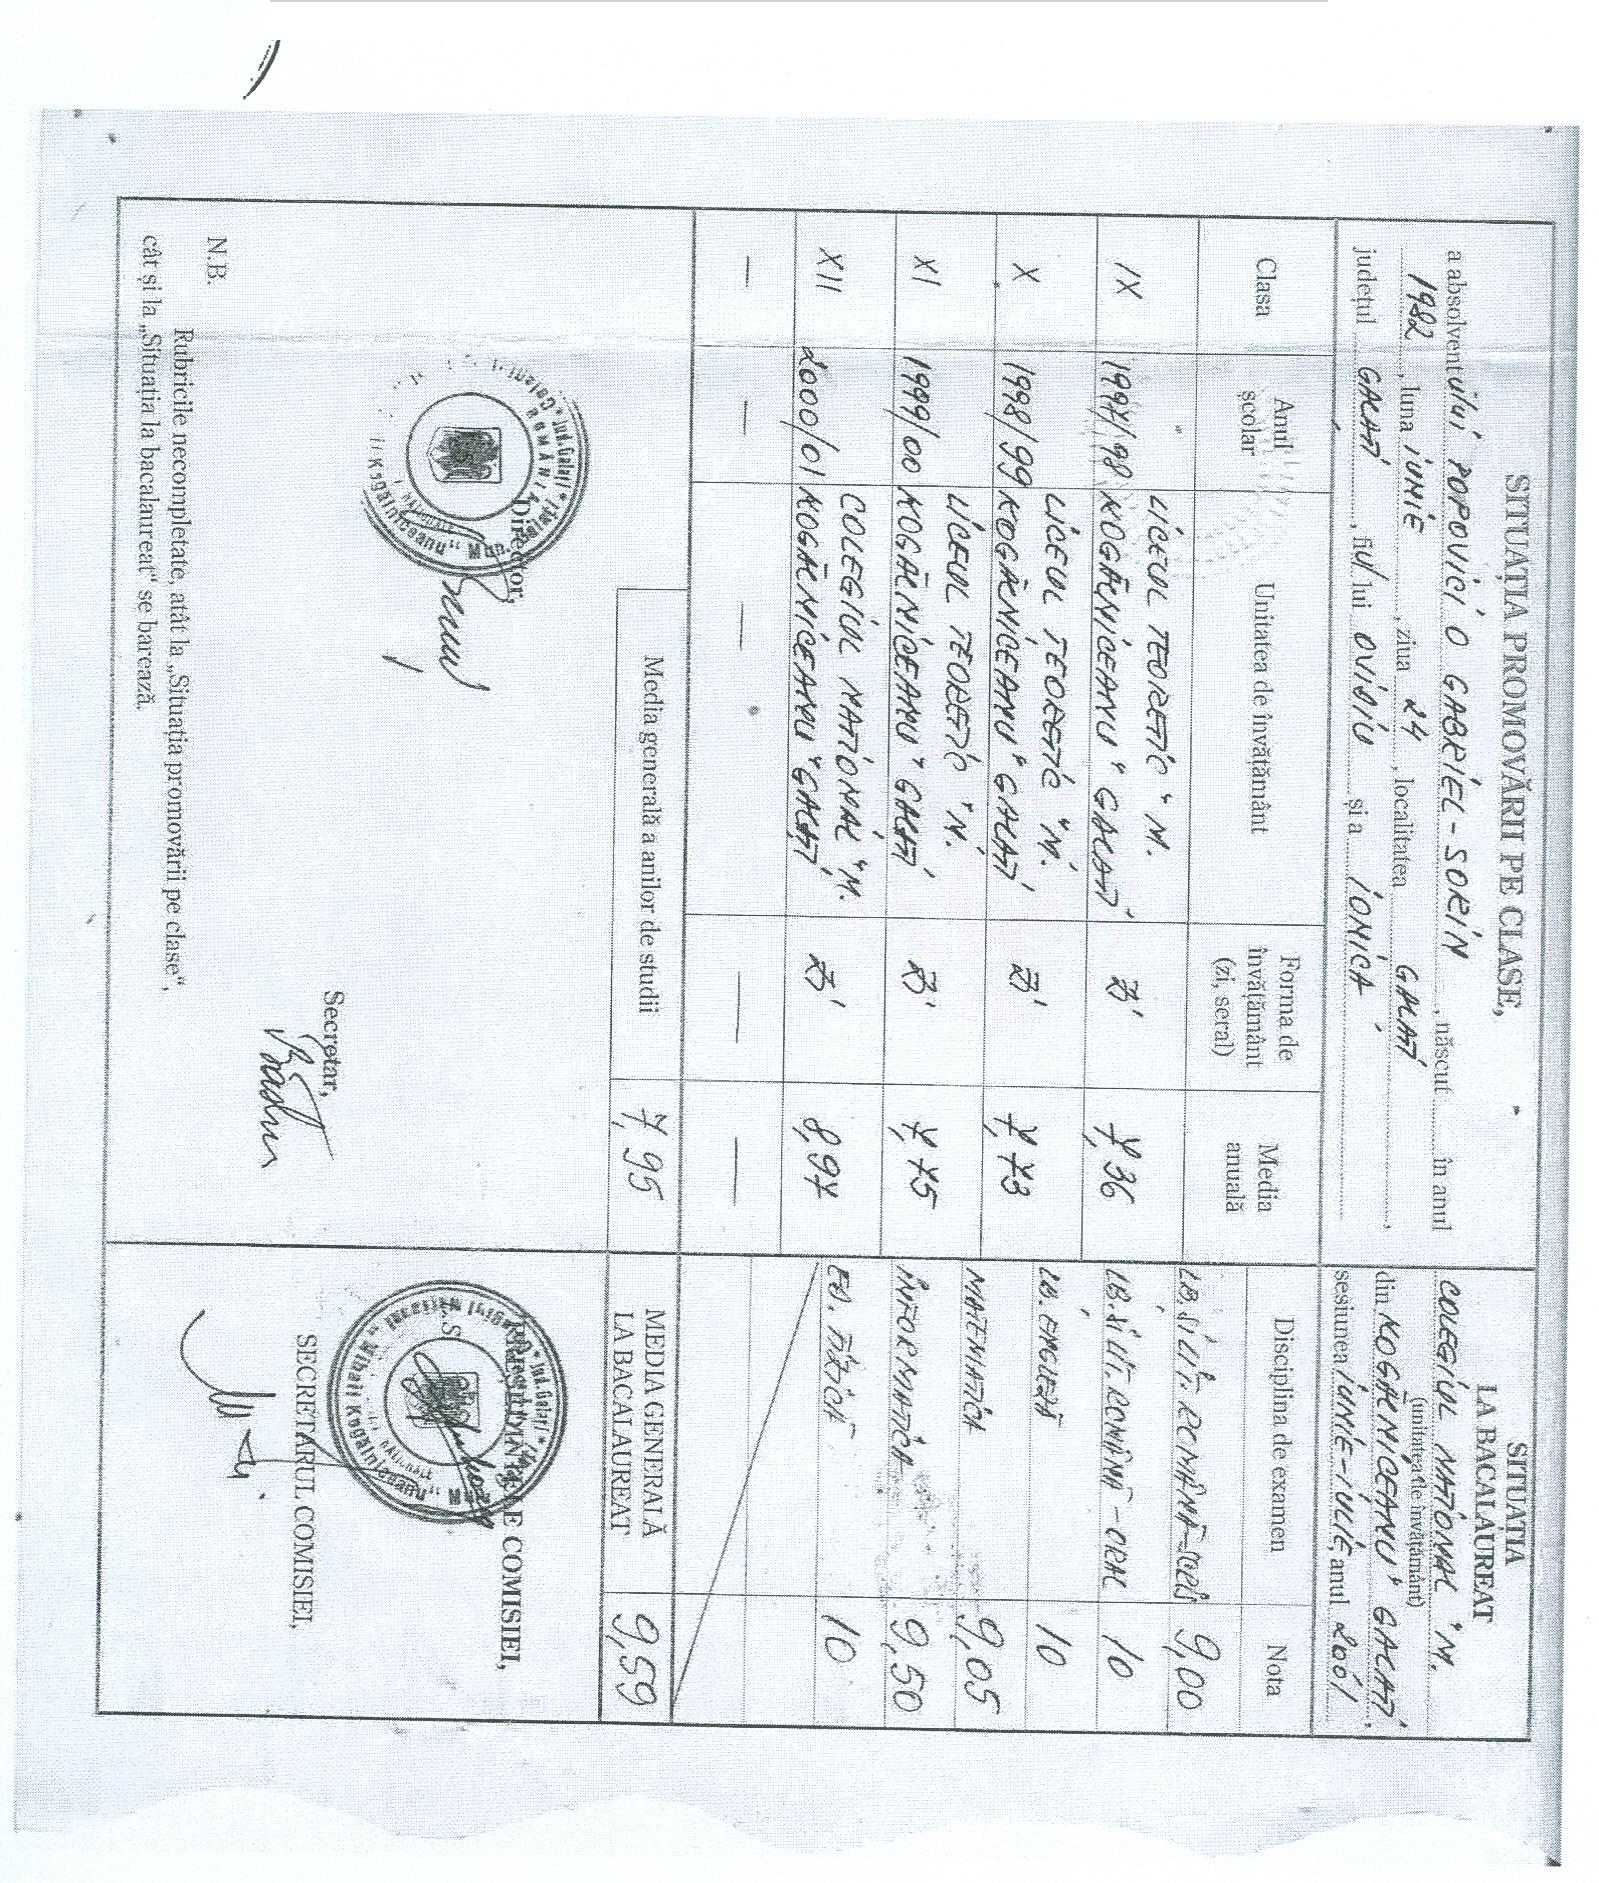 SITUAȚIA PROMOVĂRII PE CLASE,
a absolventului POPOVICI O GABRIEL-SORIN, născut în anul
1982, luna IUNIE, ziua 24, localitatea GALAȚI,
județul GALAȚI, fiul lui OVIDIU și a IONICA
Clasa Anul școlar Unitatea de învățământ Forma de învățământ (zi, seral) Media anuală
IX 1997/98 LICEUL TEORETIC "M. KOGĂLNICEANU" GALAȚI ZI 7,36
X 1998/99 LICEUL TEORETIC "M. KOGĂLNICEANU" GALAȚI ZI 7,73
XI 1999/00 LICEUL TEORETIC "M. KOGĂLNICEANU" GALAȚI ZI 7,75
XII 2000/01 COLEGIUL NAȚIONAL "M. KOGĂLNICEANU" GALAȚI ZI 8,97
— — — — —
Media generală a anilor de studii 7,95
Director,
Secretar,
N.B.
Rubricile necompletate, atât la „Situația promovării pe clase“,
cât și la „Situația la bacalaureat“ se barează.
SITUAȚIA
LA BACALAUREAT
COLEGIUL NAȚIONAL "M.
(unitatea de învățământ)
din KOGĂLNICEANU" GALAȚI,
sesiunea IUNIE-IULIE, anul 2001
Disciplina de examen Nota
LB. ȘI LIT. ROMÂNĂ-SCRIS 9,00
LB. ȘI LIT. ROMÂNĂ-ORAL 10
LB. ENGLEZĂ 10
MATEMATICA 9,05
INFORMATICA 9,50
ED. FIZICĂ 10
MEDIA GENERALĂ
LA BACALAUREAT 9,59
PREȘEDINTELE COMISIEI,
SECRETARUL COMISIEI,